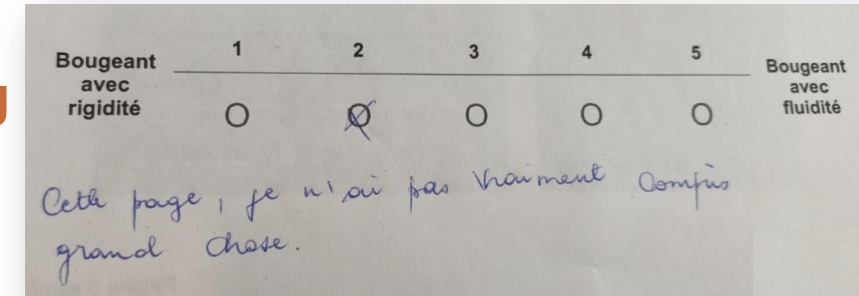 1 2 3 4 5
Bougeant
avec
rigidité
Bougeant
avec
fluidité
Cette page, je n'ai pas vraiment compris
grand chose.